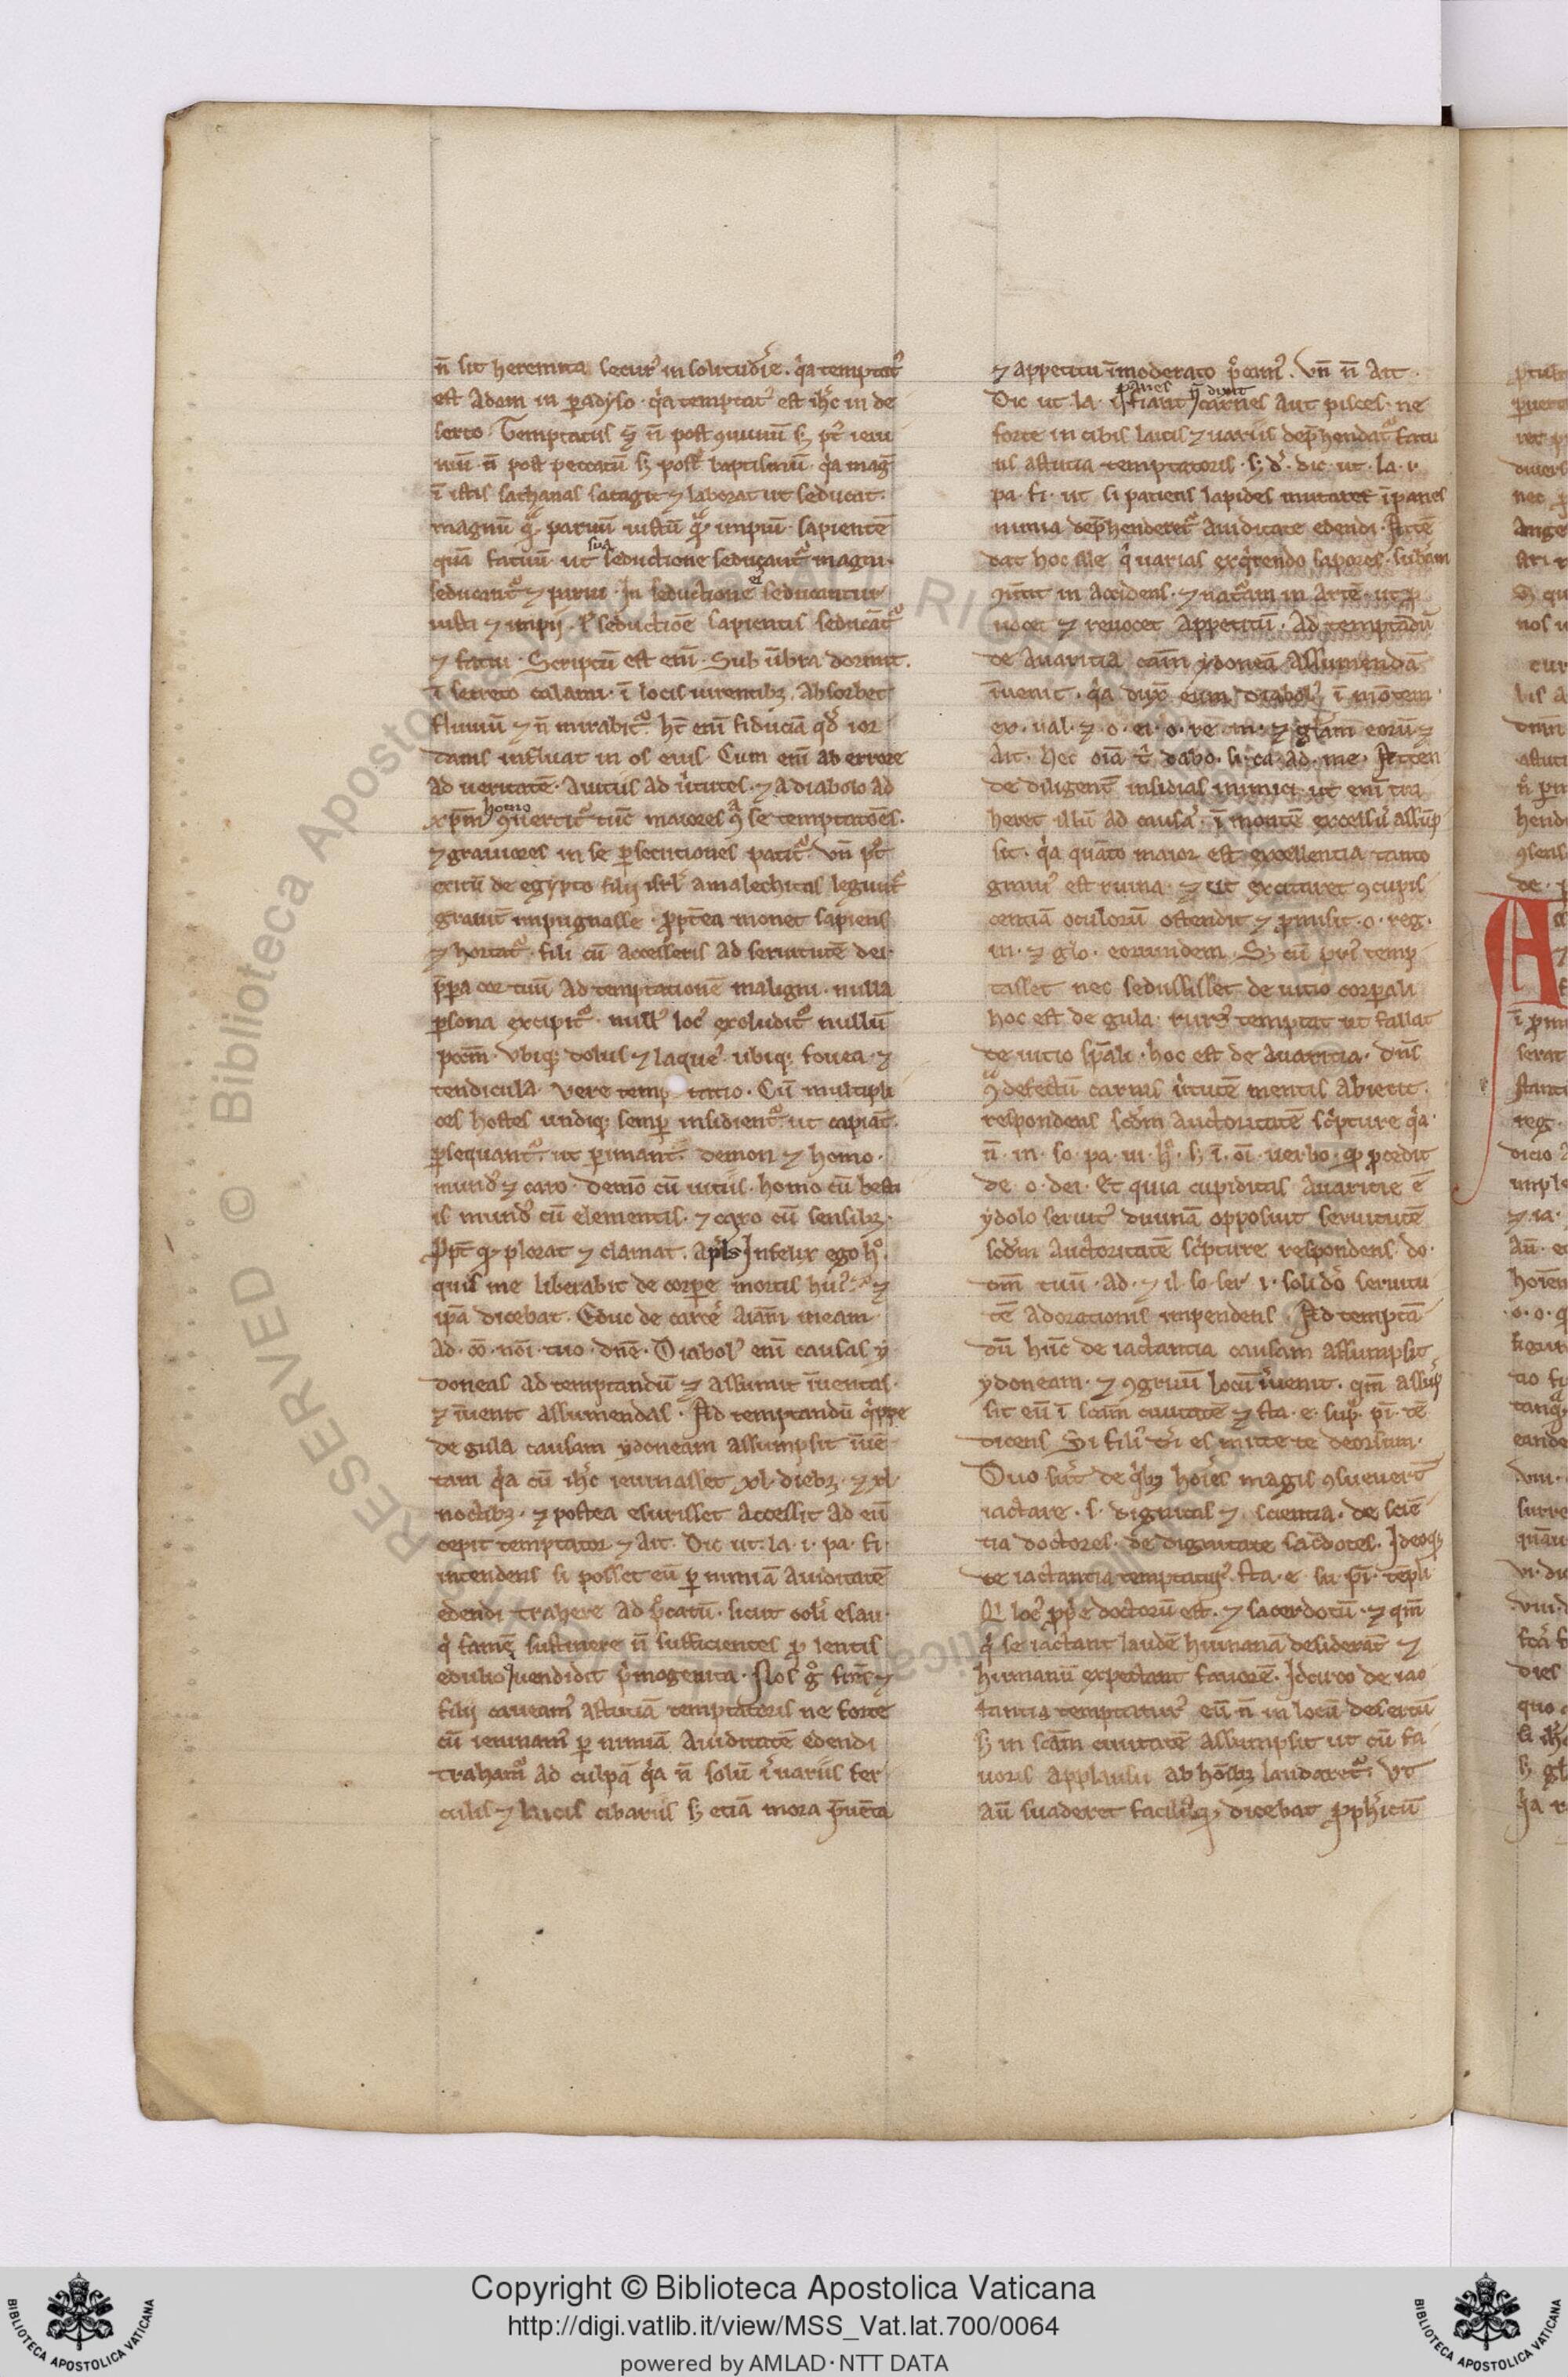 n̄ sit heremita secur᷒ in solitudīe. q̇a temptat᷒
est adam in ꝑadyso. q̇a temptat᷒ est ihc̄ in de
serto. Temptatus n̄ post ieiu
niū. n̄ post peccatū ſꝫ post baptismū. q̇a maḡ
ī istis sathanas satagit ⁊ laborat ut seducat.
magnū paruū iustū impiū. sapientē
quā fatuū. ut sua seductione seducant᷑ magni.
seducant᷑ ⁊ parui. In seductione seducantur
iusti ⁊ impij. seductiōe sapientis seducāt᷑
⁊ fatui. Scriptū est eni. Sub ūbra dormit.
ī secreto calami. ī locis uirentibꝫ. Absorbet
fluuiū ⁊ n̄ mirabit᷑. ht̄ eni fiduciā qd̓ ior
danis influat in os eius. Cum eni ab errore
ad ueritatē. a uitiis ad uirtutes. ⁊ a diabolo ad
xp̄m homo ꝯuertit᷑ tūc maiores se temptatōes.
⁊ grauiores in se ꝑsecutiones patit᷑. Vn̄ pꝰt
exitū de egypto filij isrl̓ amalechitas legunt᷑
grauit̄ impugnasse. ꝓpt̄ea monet sapiens
⁊ hortat᷑. fili cū accesseris ad seruitutē dei.
p̄ꝑa cor tuū ad temptationē maligni. nulla
ꝑsona excipit᷑. null᷒ loc᷒ excludit᷑ nullū
pccm̄. Vbiqꝫ dolus ⁊ laque᷒. ubiqꝫ fouea. ⁊
tendicula. Vere temp tatio. Cū multipli
ces hostes undiqꝫ semꝑ insident᷑. ut capiāt.
ꝑsequant᷑. ut ꝑimant. demon ⁊ homo.
mund᷒ ⁊ caro. demō cū uitiis. homo cū besti
is mund᷒ cū elementis. ⁊ caro cū sensibꝫ.
plorat ⁊ clamat. apl̄s Infelix ego hº.
quis me liberabit de corꝑe mortis hui᷒. ⁊
ipā dicebat. Educ de carcē aīam meam
ad. cō. nōi. tuo. dnē. Diabol᷒ eni causas y
doneas ad temptandū ⁊ assumit īuentas.
⁊ īuenit assumendas. Ad temptandū q̇ppe
de gula causam ydoneam assumpsit īuē
tam q̇a cū ihc̄ ieiunasset xl. diebꝫ. ⁊ xl.
noctibꝫ. ⁊ postea esurisset accessit ad eū
cepit temptator ⁊ ait. Dic ut. la. i. pa. fi.
intendens si posset eū ꝑ nimiā auiditatē
edendi trahere ad pccatū. sicut esau.
q̇ famē sustinere n̄ sufficientes ꝓ lentis
edulio uendidit p̓mogenita. Nos gͦ frēs ⁊
filij caueam᷒ astutiā temptatoris ne forte
cū ieiunam᷒ ꝑ nimiā auiditatē edendi
traham᷑ ad culpā q̇a n̄ solū ī uariis fer
culis ⁊ lautis cibariis ſꝫ etiā mora p̄uēta
⁊ appetitu īmoderato pͦcam᷒. Vn̄ n̄ ait.
Dic ut la. i. panes fiant n̄ dixit carnes aut pisces. ne
forte in cibis lautis ⁊ uariis dep̄hendat᷑ fatu
us astutia temptatoris. ſꝫ dic. ut. la. i.
pa. fi. ut si patiens lapides mutaret ī panes
nimia dep̄henderet᷑ auiditate edendi. Attē
dat hoc ille q̇ uarias exq̇rendo sapores. subam
ꝯūtit in accidens. ⁊ natam in artē. ut ꝓ
uocet ⁊ reuocet appetitū. Ad temptādū
de auaritia cām ydoneā assumendā
īuenit. q̇a dux̄ eum diabol᷒ ī mōtem
ex. ual. ⁊. o. ei. o. re. m. ⁊ glām eorū. ⁊
ait. Hec oīa tͥ dabo. si. ca. ad. me. Atten
de diligent̄ insidias inimici. ut eni tra
heret illū ad causā. ī montē excelsū assūp
sit. q̇a quāto maior est excellentia tanto
graui᷒ est ruina. ⁊ ut excitaret ꝯcupis
centiā oculorū ostendit ⁊ ꝓmisit. o. reg.
m. ⁊ glo. eorundem. Sꝫ cū pri᷒ temp
tasset nec seduxisset de uitio corꝑali
hoc est de gula. rurs᷒ temptat ut fallat
de uitio sp̄ali. hoc est de auaritia. dn̄s
defectū carnis uirtutē mentis abiecit.
respondens scd̄m auctoritatē sc̓pture q̇a.
n̄. in. so. pa. ui. hº. ſꝫ. ī. oī. uerbo. qꝫ ꝓcedit
de. o. dei. Et quia cupiditas auaritie ē
ydolo seruit᷒ diuinā opposuit seruitutē
scd̄m auctoritatē sc̓pture respondens. do.
om̄ tuū. ad. ⁊ il. so. ser. i. soli dō seruitu
tē adorationis impendens. Ad temptā
dū hūc de iactantia causam assumpsit
ydoneam. ⁊ ꝯgruū locū īuenit. qm̄ assūp
sit eū ī scām ciuitatē ⁊ sta. e. sup̄. pī. tē
dicens Si fili᷒ di es mitte te deorsum.
Duo sūt de q̇bꝫ hoīes magis ꝯsueuert̄
iactare. s. dignitas ⁊ scientia. de sciē
tia doctores. de dignitate sacdotes. Ideoqꝫ
de iactantia temptat᷒. sta. e. su. pī. tēpli
loc᷒ ꝓp̓e doctorū est. ⁊ sacerdotū. ⁊ qm̄
q̇ se iactant laudē humanā desiderāt ⁊
humanū expectant fauorē. Idcirco de iac
tantia temptatur᷒ eū n̄ in locū desertū
ſꝫ in scām ciuitatē assumpsit ut cū fa
uoris applausu ab hōibꝫ laudaret᷑. Vt
aū suaderet facili᷒. dicebat ꝓph̄icū
Copyright © Biblioteca Apostolica Vaticana
http://digi.vatlib.it/view/MSS_Vat.lat.700/0064
powered by AMLAD·NTT DATA
BIBLIOTECA APOSTOLICA VATICANA
BIBLIOTECA APOSTOLICA VATICANA